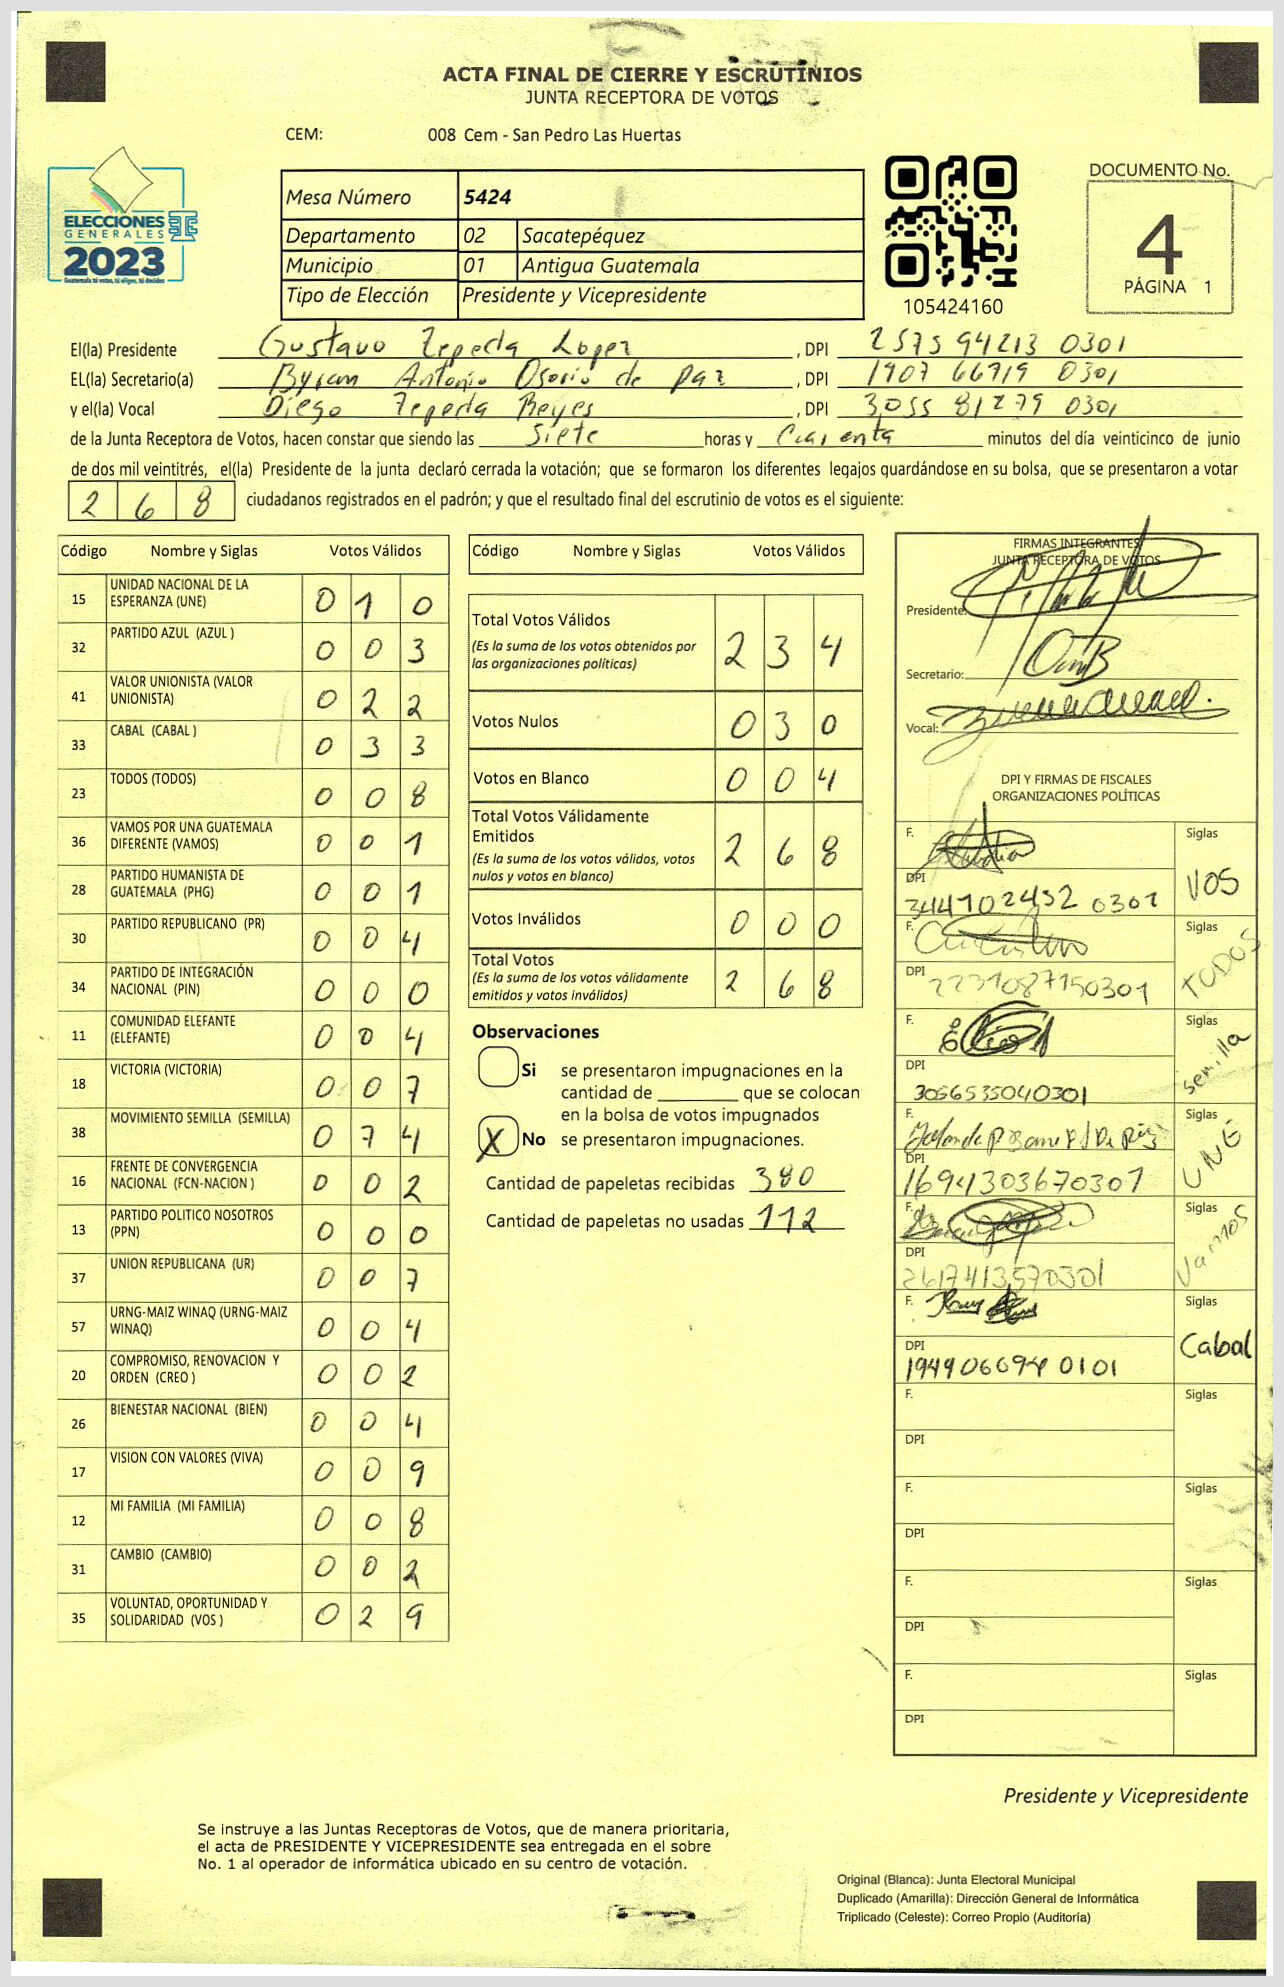 ACTA FINAL DE CIERRE Y ESCRUTINIOS
JUNTA RECEPTORA DE VOTOS
CEM: 008 Cem - San Pedro Las Huertas
ELECCIONES
GENERALES
2023
Guatemala tú votas, tú eliges, tú decides
Mesa Número 5424
Departamento 02 Sacatepéquez
Municipio 01 Antigua Guatemala
Tipo de Elección Presidente y Vicepresidente
105424160
DOCUMENTO No.
4
PÁGINA 1
El(la) Presidente Gustavo Zepeda Lopez, DPI 2575 94213 0301
EL(la) Secretario(a) Byron Antonio Osorio de paz, DPI 1907 66719 0301
y el(la) Vocal Diego Zepeda Reyes, DPI 3055 81279 0301
de la Junta Receptora de Votos, hacen constar que siendo las Siete horas y Cuarenta minutos del día veinticinco de junio
de dos mil veintitrés, el(la) Presidente de la junta declaró cerrada la votación; que se formaron los diferentes legajos quardándose en su bolsa, que se presentaron a votar
268 ciudadanos registrados en el padrón; y que el resultado final del escrutinio de votos es el siguiente:
Código Nombre y Siglas Votos Válidos
15 UNIDAD NACIONAL DE LA ESPERANZA (UNE) 010
32 PARTIDO AZUL (AZUL ) 003
41 VALOR UNIONISTA (VALOR UNIONISTA) 022
33 CABAL (CABAL ) 033
23 TODOS (TODOS) 008
36 VAMOS POR UNA GUATEMALA DIFERENTE (VAMOS) 001
28 PARTIDO HUMANISTA DE GUATEMALA (PHG) 001
30 PARTIDO REPUBLICANO (PR) 004
34 PARTIDO DE INTEGRACIÓN NACIONAL (PIN) 000
11 COMUNIDAD ELEFANTE (ELEFANTE) 004
18 VICTORIA (VICTORIA) 007
38 MOVIMIENTO SEMILLA (SEMILLA) 074
16 FRENTE DE CONVERGENCIA NACIONAL (FCN-NACION ) 002
13 PARTIDO POLITICO NOSOTROS (PPN) 000
37 UNION REPUBLICANA (UR) 007
57 URNG-MAIZ WINAQ (URNG-MAIZ WINAQ) 004
20 COMPROMISO, RENOVACION Y ORDEN (CREO ) 002
26 BIENESTAR NACIONAL (BIEN) 004
17 VISION CON VALORES (VIVA) 009
12 MI FAMILIA (MI FAMILIA) 008
31 CAMBIO (CAMBIO) 002
35 VOLUNTAD, OPORTUNIDAD Y SOLIDARIDAD (VOS ) 029
Código Nombre y Siglas Votos Válidos
Total Votos Válidos 234
(Es la suma de los votos obtenidos por
las organizaciones políticas)
Votos Nulos 030
Votos en Blanco 004
Total Votos Válidamente
Emitidos 268
(Es la suma de los votos válidos, votos
nulos y votos en blanco)
Votos Inválidos 000
Total Votos 268
(Es la suma de los votos válidamente
emitidos y votos inválidos)
Observaciones
Si se presentaron impugnaciones en la
cantidad de ________ que se colocan
en la bolsa de votos impugnados
X No se presentaron impugnaciones.
Cantidad de papeletas recibidas 380
Cantidad de papeletas no usadas 112
FIRMAS INTEGRANTES
JUNTA RECEPTORA DE VOTOS
Presidente:
Secretario:
Vocal:
DPI Y FIRMAS DE FISCALES
ORGANIZACIONES POLÍTICAS
F. Siglas VOS
DPI 344702452 0301
F. Siglas TODOS
DPI 2231087150301
F. Siglas semilla
DPI 3056535040301
F. Siglas UNE
DPI 1694303670307
F. Siglas Vamos
DPI 2617413570301
F. Siglas Cabal
DPI 194906694 0101
F. Siglas
DPI
F. Siglas
DPI
F. Siglas
DPI
F. Siglas
DPI
Presidente y Vicepresidente
Se instruye a las Juntas Receptoras de Votos, que de manera prioritaria,
el acta de PRESIDENTE Y VICEPRESIDENTE sea entregada en el sobre
No. 1 al operador de informática ubicado en su centro de votación.
Original (Blanca): Junta Electoral Municipal
Duplicado (Amarilla): Dirección General de Informática
Triplicado (Celeste): Correo Propio (Auditoría)